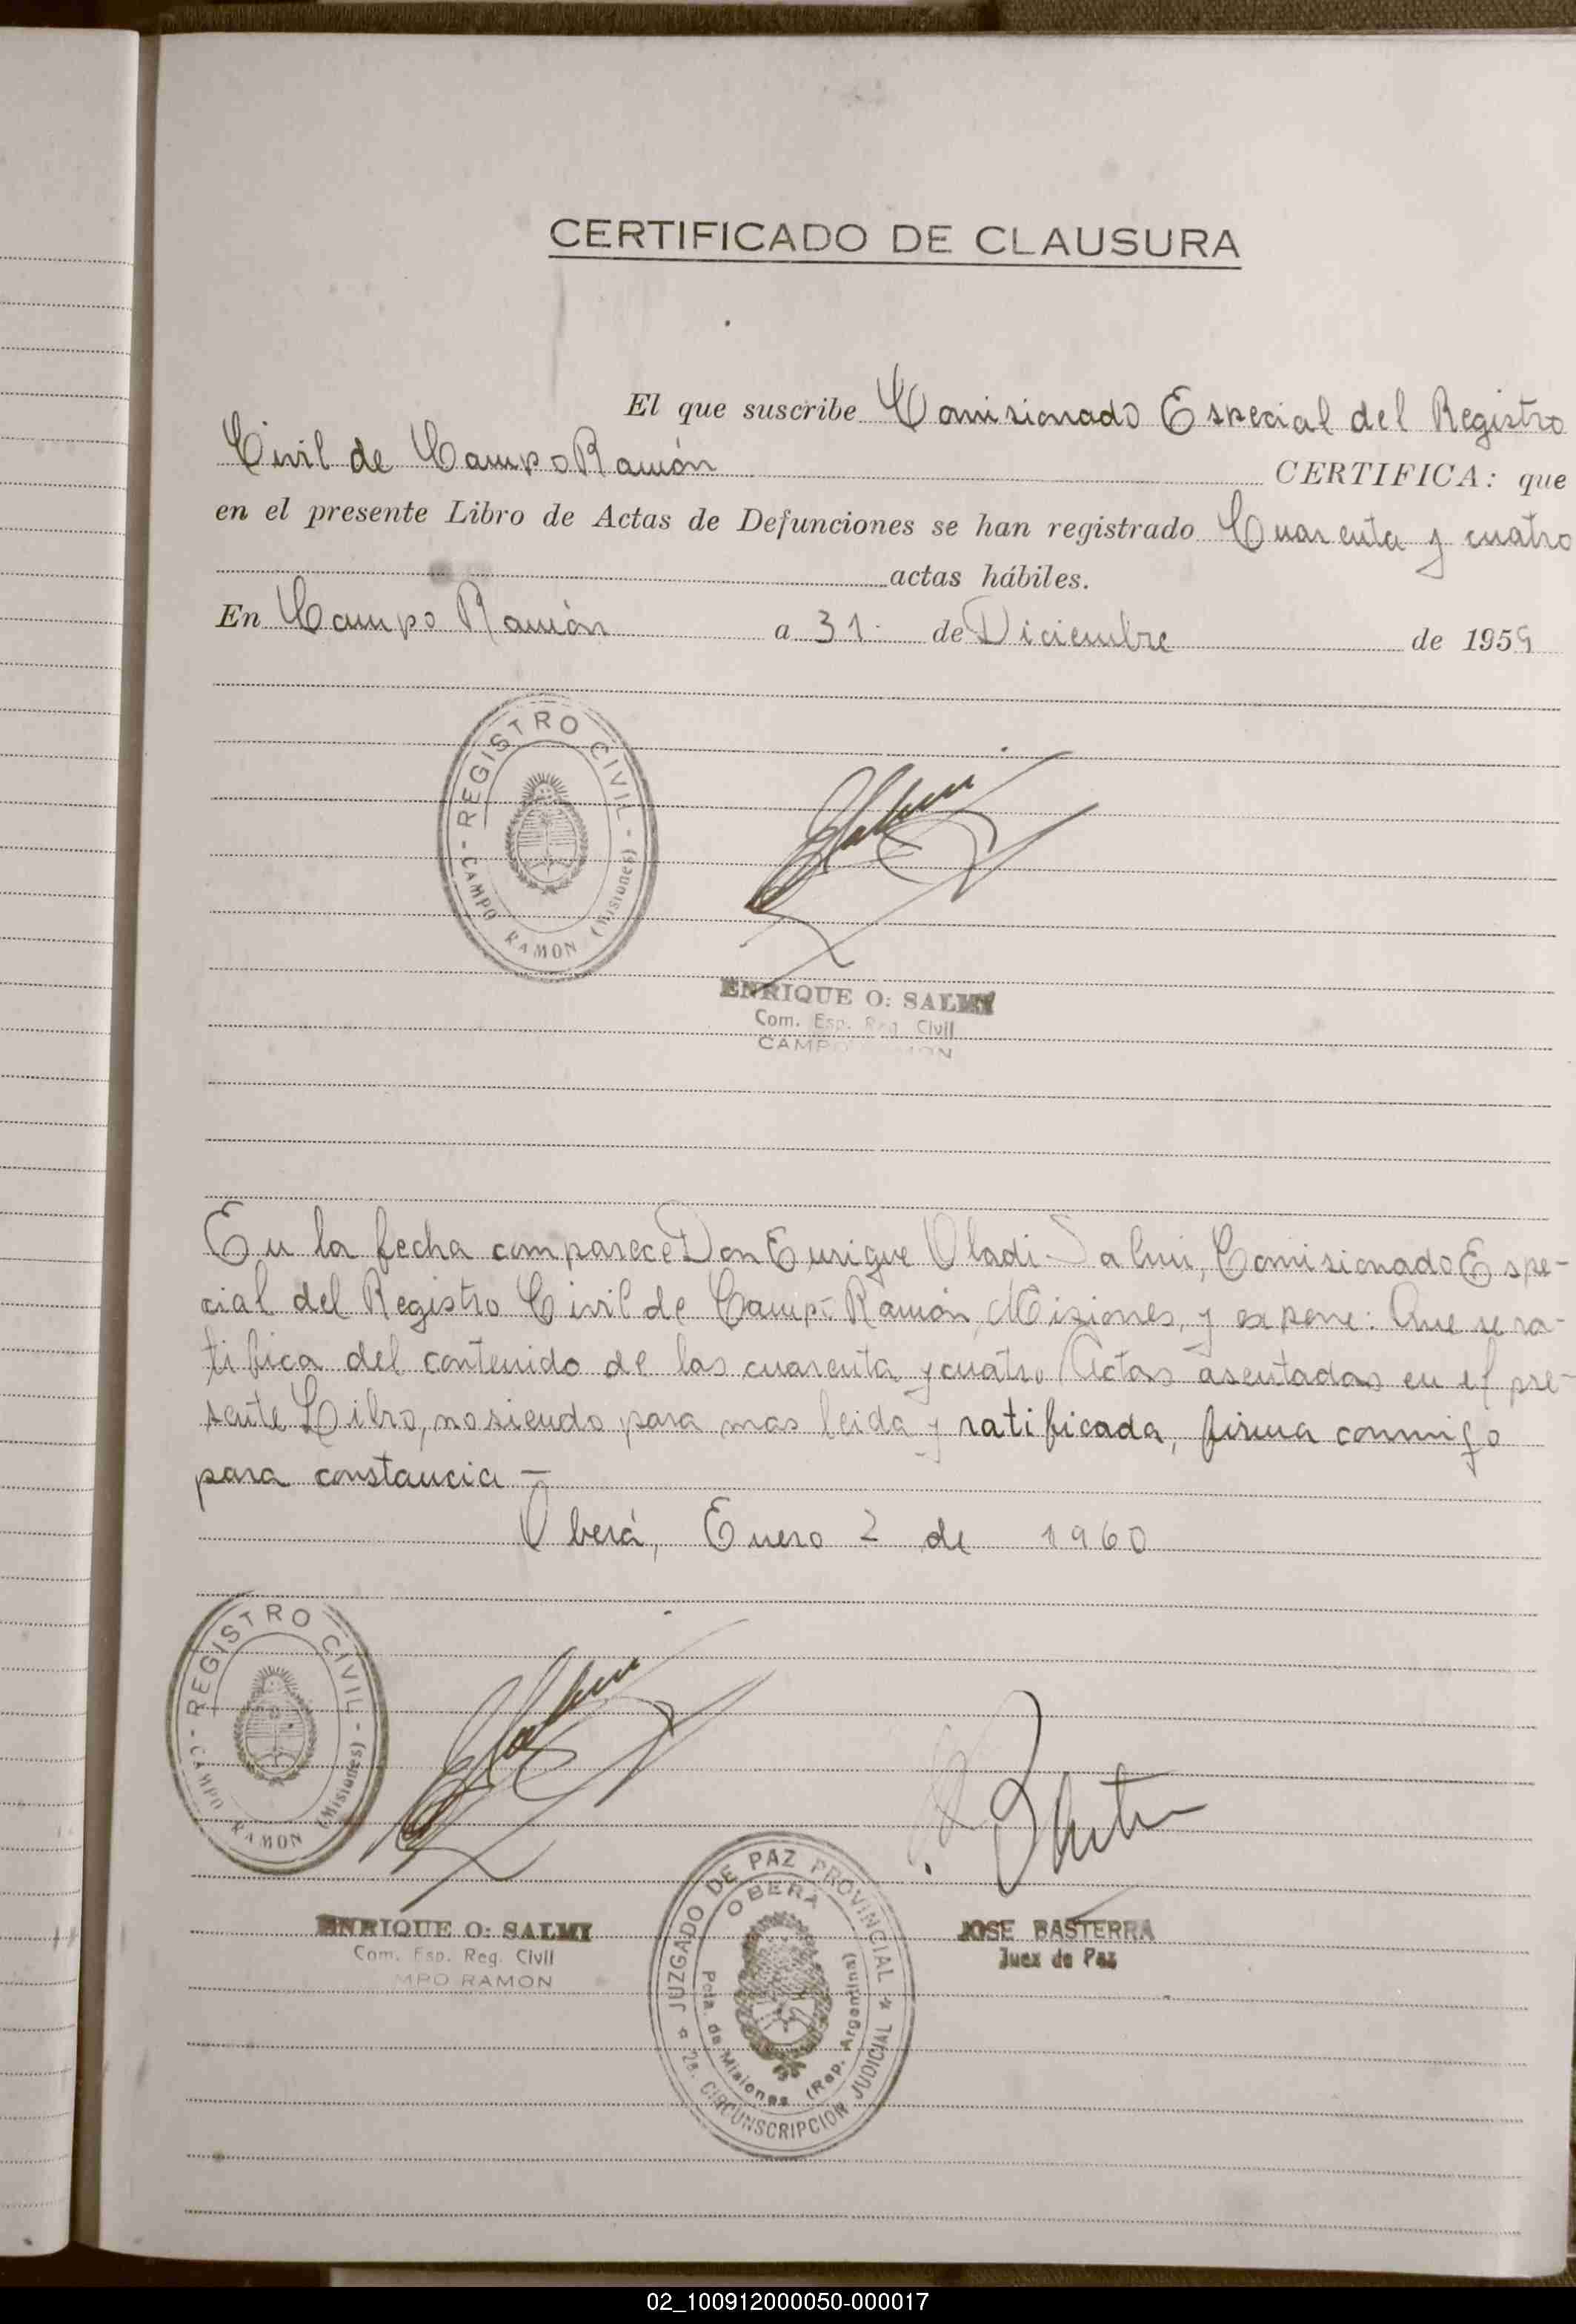 CERTIFICADO DE CLAUSURA
El que suscribe Comisionado Especial del Registro
Civil de Campo Ramón CERTIFICA: que
en el presente Libro de Actas de Defunciones se han registrado Cuarenta y cuatro
actas hábiles.
En Campo Ramón a 31 de Diciembre de 1959
REGISTRO CIVIL
- CAMPO RAMON (Misiones) -
ENRIQUE O: SALMI
Com. Esp. Reg. Civil
CAMPO RAMON
En la fecha comparece Don Enrique Oladi Salmi, Comisionado Espe-
cial del Registro Civil de Campo Ramón, Misiones, y expone: Que se ra-
tifica del contenido de las cuarenta y cuatro Actas asentadas en el pre-
sente Libro, no siendo para mas leida y ratificada, firma conmigo
para constancia -
Oberá, Enero 2 de 1960
REGISTRO CIVIL
- CAMPO RAMON (Misiones) -
ENRIQUE O: SALMI
Com. Esp. Reg. Civil
MPO RAMON
JUZGADO DE PAZ PROVINCIAL
OBERA
Pcia. de Misiones (Rep. Argentina)
2a. CIRCUNSCRIPCION JUDICIAL
JOSE BASTERRA
Juez de Paz
02_100912000050-000017